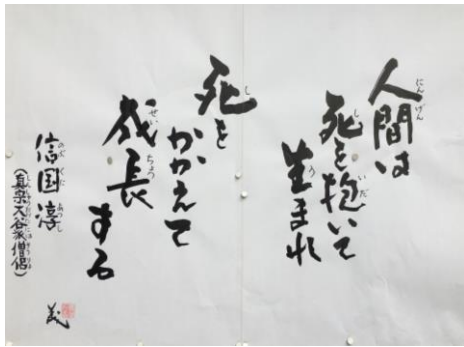 人間は
死を抱いて
生まれ
死を
かかえて
成長する
信国淳
(真宗大谷派僧侶)